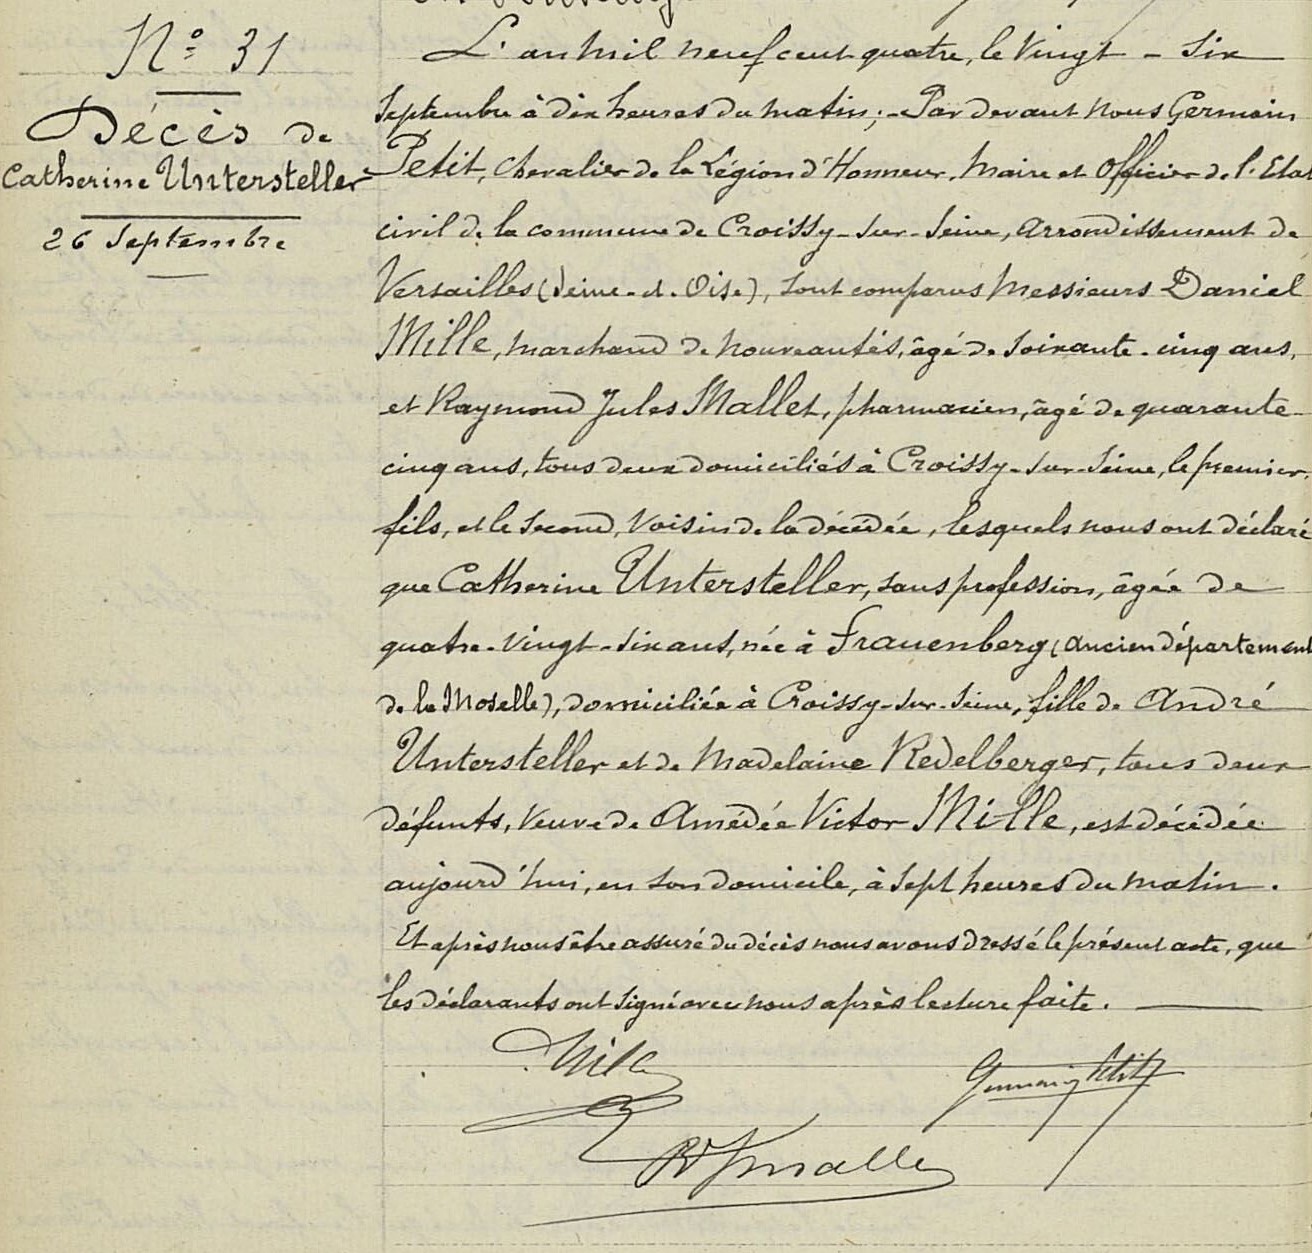 Nº 31
Décès de
Catherine Untersteller
26 Septembre
L'an mil neuf cent quatre, le vingt - six
Septembre à dix heures du matin; - Par devant nous Germain
Petit, Chevalier de la Légion d'Honneur, Maire et Officier de l'Etat
civil de la commune de Croissy-sur-Seine, arrondissement de
Versailles (Seine-et-Oise), sont comparus Messieurs Daniel
Mille, marchand de nouveautés, âgé de soixante-cinq ans,
et Raymond Jules Mallet, pharmacien, âgé de quarante-
cinq ans, tous deux domiciliés à Croissy-sur-Seine, le premier,
fils, et le second, voisin de la décédée, lesquels nous ont déclaré
que Catherine Untersteller, sans profession, âgée de
quatre-vingt-six ans, née à Frauenberg (ancien département
de la Moselle), domiciliée à Croissy-sur-Seine, fille de André
Untersteller et de Madelaine Redelberger, tous deux
défunts, veuve de Amédée Victor Mille, est décédée
aujourd'hui, en son domicile, à sept heures du matin.
Et après nous être assuré du décès nous avons dressé le présent acte, que
les déclarants ont signé avec nous après lecture faite.
Mille
Germain Petit